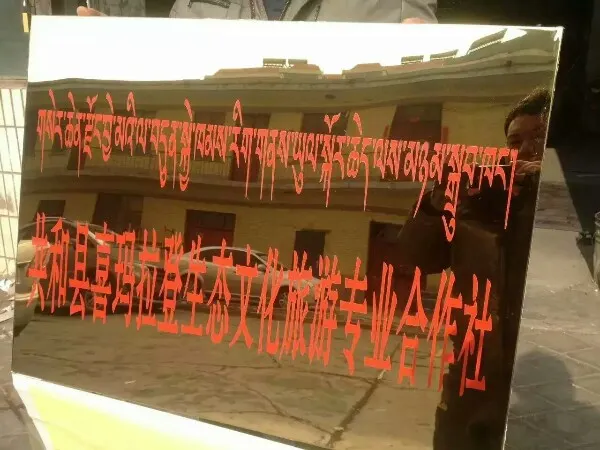 གསེར་ཆེན་རྫོང་ཧྱི་མ་འི་བདུན་སྐྱེ་ཁམས་རིག་གནས་ཡུལ་སྐོར་ཆེད་ལས་མཉམ་སྒྲུབ་ཁང་།
共和县喜玛拉登生态文化旅游专业合作社